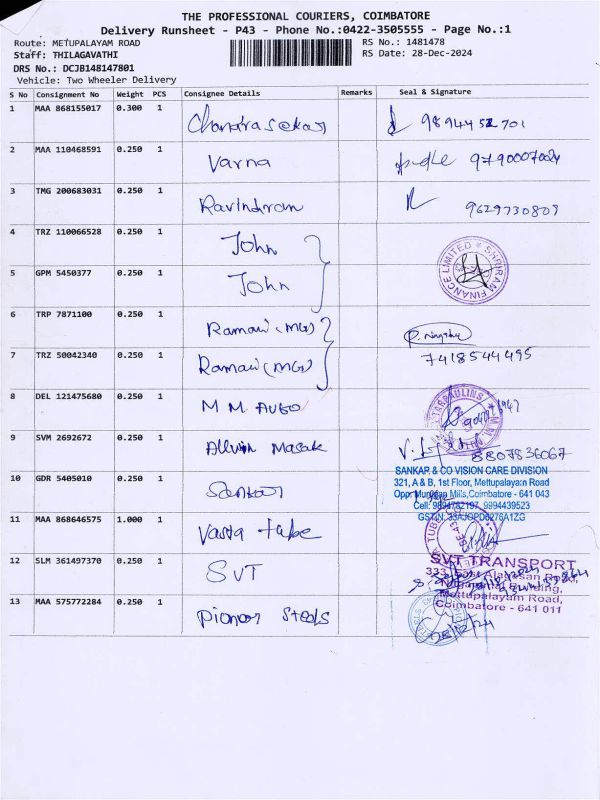 THE PROFESSIONAL COURIERS, COIMBATORE
Delivery Runsheet - P43 - Phone No.:0422-3505555 - Page No.:1
Route: METUPALAYAM ROAD
RS No.: 1481478
Staff: THILAGAVATHI
RS Date: 28-Dec-2024
DRS No.: DCJB148147801
Vehicle: Two Wheeler Delivery
S No Consignment No Weight PCS Consignee Details Remarks Seal & Signature
1 MAA 868155017 0.300 1 Chandrasekar 9894452701
2 MAA 110468591 0.250 1 Varna 9790007024
3 TMG 200683031 0.250 1 Ravindran 9629730809
4 TRZ 110066528 0.250 1 John
SHRIRAM FINANCE LIMITED
5 GPM 5450377 0.250 1 John
6 TRP 7871100 0.250 1 Ramani (MG)
7 TRZ 50042340 0.250 1 Ramani (MG) 7418544495
8 DEL 121475680 0.250 1 M M AUTO
TARPAULINS
9 SVM 2692672 0.250 1 8807836067
SANKAR & CO VISION CARE DIVISION
10 GDR 5405010 0.250 1 Sankar
321, A & B, 1st Floor, Mettupalayam Road
Mills, Coimbatore - 641 043
9994439523
11 MAA 868646575 1.000 1 Vasta tube
12 SLM 361497370 0.250 1 SVT
SVT TRANSPORT
Mettupalayam Road,
Coimbatore - 641 011
13 MAA 575772284 0.250 1 Pioneer Steels
28/12/24